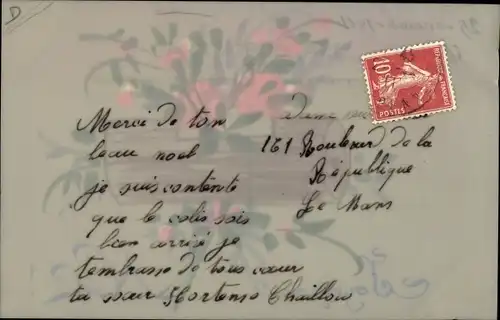 D
Merci de ton
beau noel
je suis contente
que le colis sois
bien arrivé je
tembrasse de tous cœur
ta sœur Hortense Chaillou
161 Boulevard de la
République
Le Mans
10c
POSTES
REPUBLIQUE FRANÇAISE